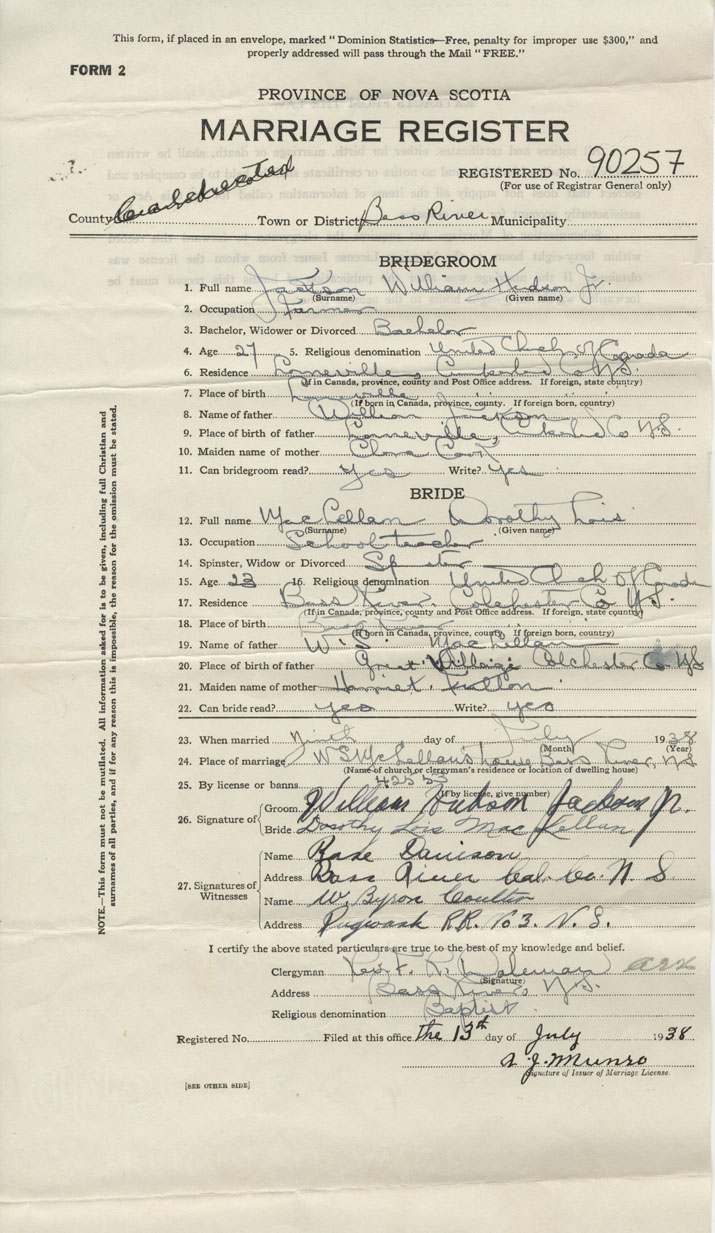 This form, if placed in an envelope, marked "Dominion Statistics—Free, penalty for improper use $300," and
properly addressed will pass through the Mail "FREE."
FORM 2
PROVINCE OF NOVA SCOTIA
MARRIAGE REGISTER
REGISTERED No. 90257
(For use of Registrar General only)
County Town or District Bass River Municipality
BRIDEGROOM
1. Full name Jackson William Hudson Jr.
(Surname) (Given name)
2. Occupation Farmer
3. Bachelor, Widower or Divorced Bachelor
4. Age 27 5. Religious denomination United Church of Canada
6. Residence Lorneville, Cumberland Co N.S.
(If in Canada, province, county and Post Office address. If foreign, state country)
7. Place of birth Lorneville " " "
(If born in Canada, province, county. If foreign born, country)
8. Name of father William Jackson
9. Place of birth of father Lorneville, Cumberland Co N.S.
10. Maiden name of mother Clara
11. Can bridegroom read? Yes Write? Yes
BRIDE
12. Full name MacLellan Dorothy Lois
(Surname) (Given name)
13. Occupation School teacher
14. Spinster, Widow or Divorced Spinster
15. Age 23 16. Religious denomination United Church of Canada
17. Residence Bass River, Colchester Co N.S.
(If in Canada, province, county and Post Office address. If foreign, state country)
18. Place of birth Bass River
(If born in Canada, province, county, If foreign born, country)
19. Name of father W. S. MacLellan
20. Place of birth of father Great Village Colchester Co NS
21. Maiden name of mother Harriet Fulton
22. Can bride read? yes Write? yes
23. When married Ninth day of July 1938
(Month) (Year)
24. Place of marriage W S McLellan's house Bass River, N.S.
(Name of church or clergyman's residence or location of dwelling house)
25. By license or banns
(If by license, give number)
26. Signature of Groom William Hudson Jackson Jr.
Bride Dorothy Lois MacLellan
27. Signatures of Witnesses
Name Davison
Address Bass River Col. Co. N. S.
Name W. Byron Coulter
Address Pugwash R.R. No 3. N. S.
I certify the above stated particulars are true to the best of my knowledge and belief.
Clergyman Rev. F.
(Signature)
Address Bass River, N.S.
Religious denomination Baptist
Registered No. Filed at this office the 13th day of July 1938
A. J. Munro
Signature of Issuer of Marriage License.
[SEE OTHER SIDE]
NOTE.—This form must not be mutilated. All information asked for is to be given, including full Christian and
surnames of all parties, and if for any reason this is impossible, the reason for the omission must be stated.